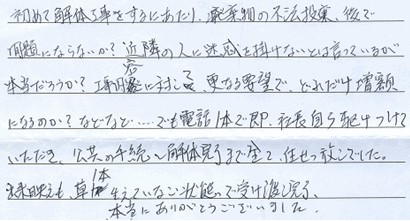 初めて解体工事をするにあたり、廃棄物の不法投棄、後で
問題にならないか？近隣の人に迷惑を掛けないとは言っているが
本当だろうか？工事内容に対して、更なる要望で、どれだけ増額
になるのか？などなど……でも電話1本で即、社長自ら駆けつけて
いただき、公共の手続〜解体完了まで全て、任せっ放しでした。
出来映えも、草1本生えていない状態で受け渡し完了、
本当にありがとうございました